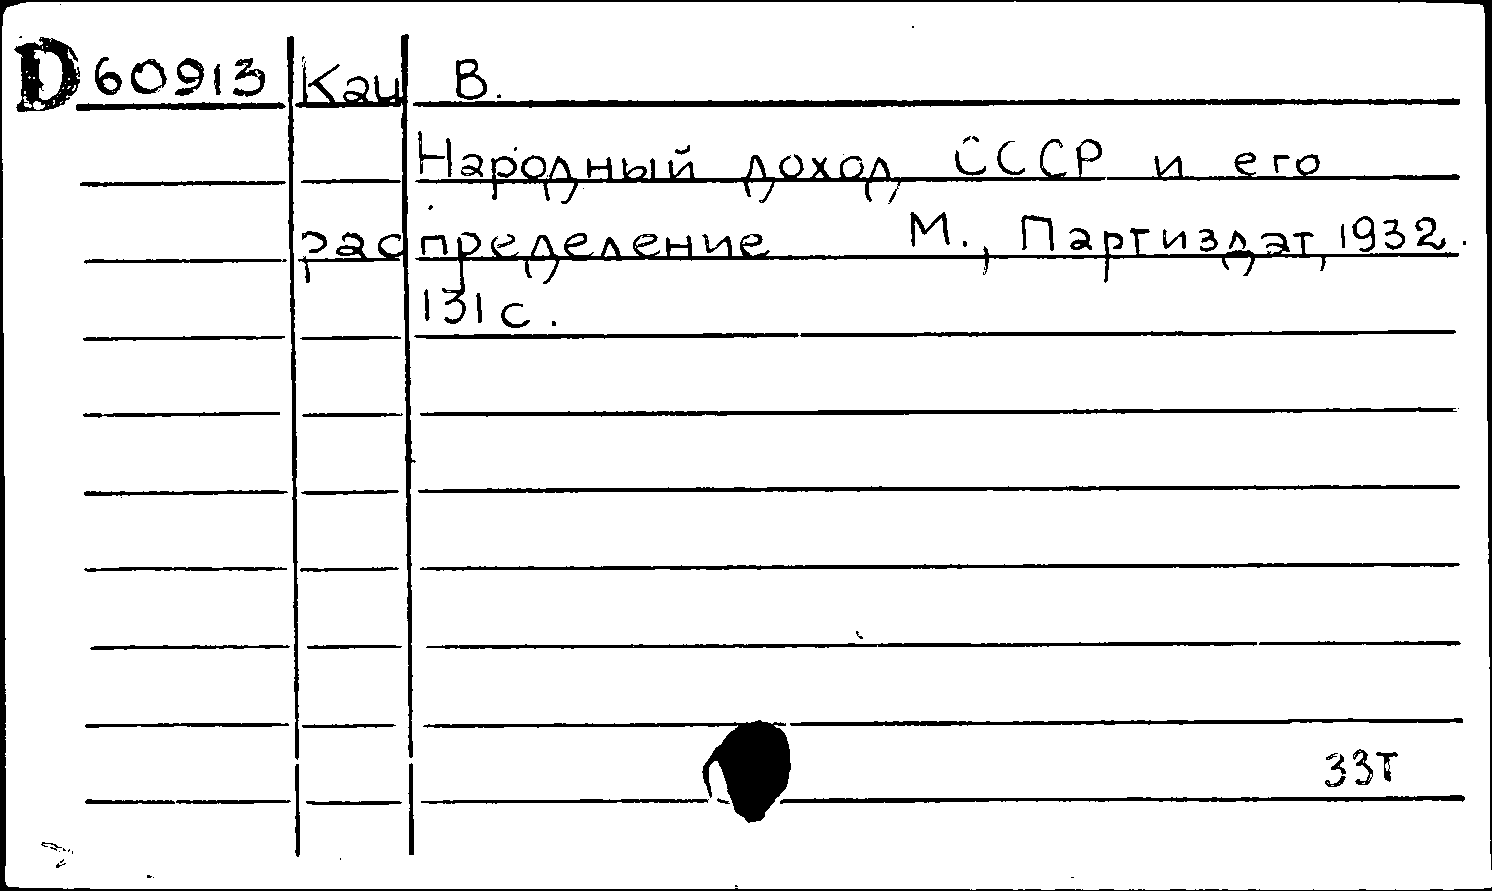 D 60913 Кац В.
Народный доход СССР и его
распределение М., Партиздат, 1932.
131 с.
33т